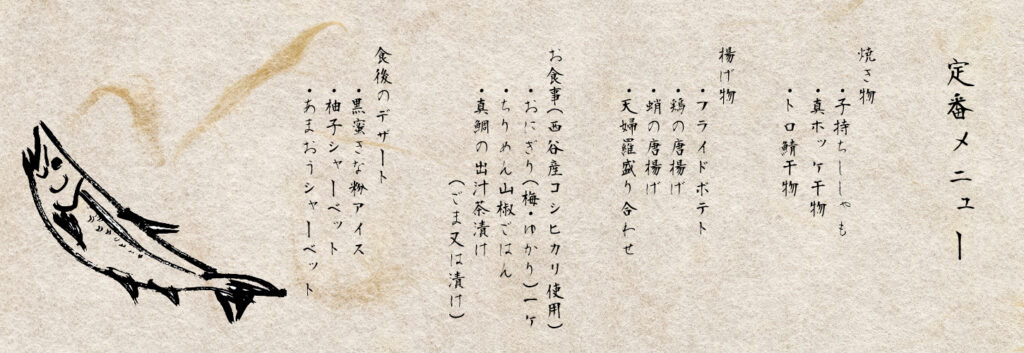 定番メニュー
焼き物
・子持ちししゃも
・真ホッケ干物
・トロ鯖干物
揚げ物
・フライドポテト
・鶏の唐揚げ
・蛸の唐揚げ
・天婦羅盛り合わせ
お食事(西谷産コシヒカリ使用)
・おにぎり(梅・ゆかり)一ヶ
・ちりめん山椒ごはん
・真鯛の出汁茶漬け
(ごま又は漬け)
食後のデザート
・黒蜜きな粉アイス
・柚子シャーベット
・あまおうシャーベット